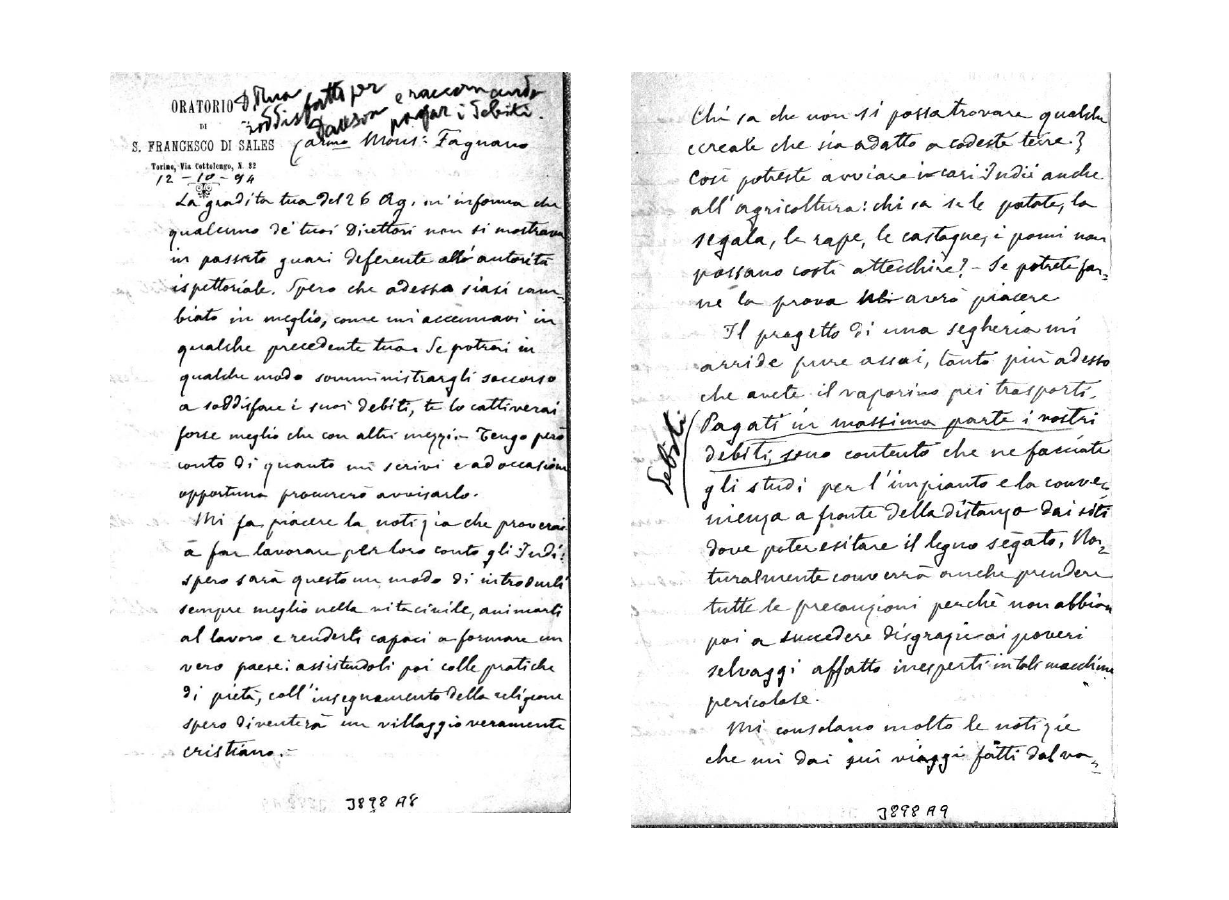 ORATORIO
DI
S. FRANCESCO DI SALES
Torino, Via Cottolengo, N. 32
12 - 10 - 94
soddisfatto per
Dawson e raccomanda
pagar i debiti.
Carmo Mons: Fagnano
La gradita tua del 26 Ag. m'informa che
qualcuno de' tuoi Direttori non si mostrava
in passato guari deferente all'autorità
ispettoriale. Spero che adesso siasi cam=
biato in meglio, come mi accennavi in
qualche precedente tua. Se potrai in
qualche modo somministrargli soccorso
a soddisfare i suoi debiti, te lo cattiverai
forse meglio che con altri mezzi. - Tengo però
conto di quanto mi scrivi e ad occasione
opportuna procurerò avvisarlo.
Mi fa piacere la notizia che proverai
a far lavorare per loro conto gli Indi:
spero sarà questo un modo di introdurli
sempre meglio nella vita civile, animarli
al lavoro e renderli capaci a formare un
vero paese: assistendoli poi colle pratiche
di pietà, coll'insegnamento della religione
spero diventerà un villaggio veramente
cristiano. -
J898 A8
Chi sa che non si possa trovare qualche
cereale che sia adatto a codeste terre?
Così potreste avviare i cari Indii anche
all'agricoltura: chi sa se le patate, la
segala, le rape, le castagne, i pomi non
possano costì attecchire? - Se potrete far=
ne la prova avrò piacere
Il progetto di una segheria mi
arride pure assai, tanto più adesso
che avete il vaporino pei trasporti.
Debiti
Pagati in massima parte i vostri
debiti, sono contento che ne facciate
gli studi per l'impianto e la conve=
nienza a fronte della distanza dai siti
dove poter esitare il legno segato, Na=
turalmente converrà anche prendere
tutte le precauzioni perchè non abbian
poi a succedere disgrazie ai poveri
selvaggi affatto inesperti in tali macchine
pericolose.
Mi consolano molto le notizie
che mi dai sui viaggi fatti dal va=
J898 A9